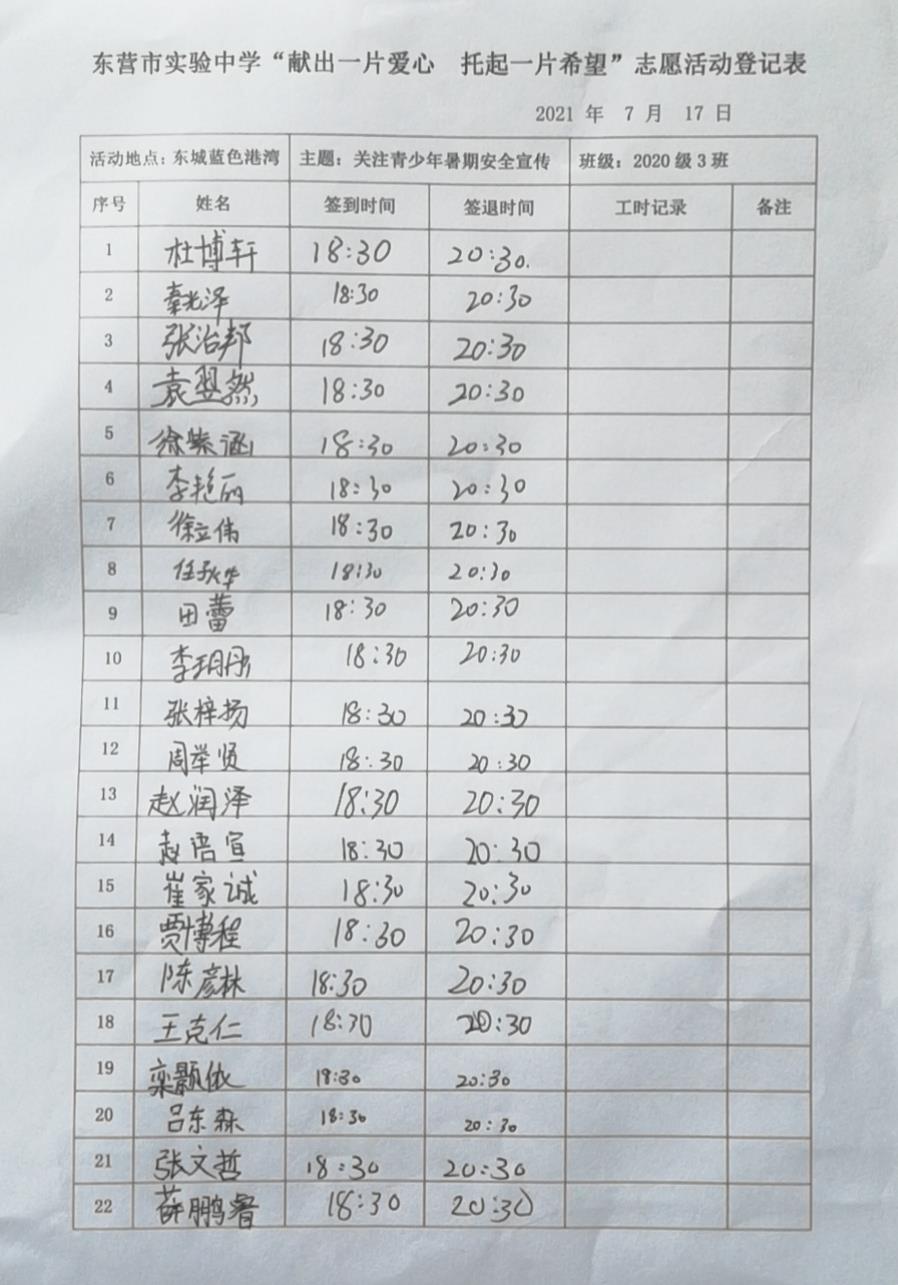 东营市实验中学“献出一片爱心 托起一片希望”志愿活动登记表
2021 年 7 月 17 日
活动地点：东城蓝色港湾 主题：关注青少年暑期安全宣传 班级：2020 级 3 班
序号 姓名 签到时间 签退时间 工时记录 备注
1 杜博轩 18:30 20:30.
2 秦光泽 18:30 20:30
3 张治邦 18:30 20:30
4 袁翌然 18:30 20:30
5 徐紫涵 18:30 20:30
6 李艳丽 18:30 20:30
7 徐立伟 18:30 20:30
8 任秋华 18:30 20:30
9 田蕾 18:30 20:30
10 李玥彤 18:30 20:30
11 张梓扬 18:30 20:30
12 周举贤 18:30 20:30
13 赵润泽 18:30 20:30
14 赵语宣 18:30 20:30
15 崔家诚 18:30 20:30
16 贾博程 18:30 20:30
17 陈彦林 18:30 20:30
18 王克仁 18:30 20:30
19 栾颢依 18:30 20:30
20 吕东森 18:30 20:30
21 张文哲 18:30 20:30
22 薛鹏睿 18:30 20:30